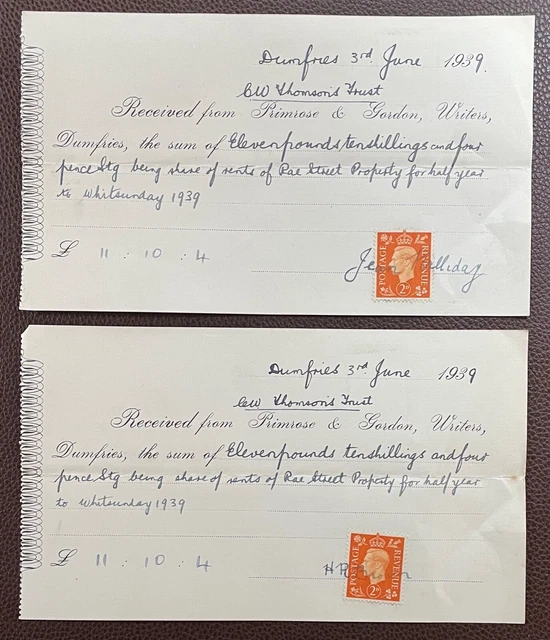 Dumfries 3rd. June 1939.
CW Thomson's Trust
Received from Primrose & Gordon, Writers,
Dumfries, the sum of Eleven pounds ten shillings and four
pence Stg being share of rents of Rae Street Property for half year
to Whitsunday 1939
£ 11 : 10 : 4
POSTAGE REVENUE
2D
Dumfries 3rd. June 1939
CW Thomson's Trust
Received from Primrose & Gordon, Writers,
Dumfries, the sum of Eleven pounds ten shillings and four
pence Stg being share of rents of Rae Street Property for half year
to Whitsunday 1939
£ 11 : 10 : 4
POSTAGE REVENUE
2D